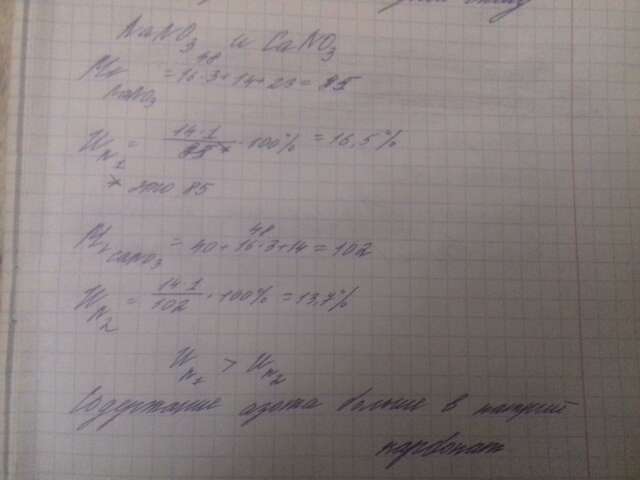 NaNO3 и CaNO3
48
Mr NaNO3 = 16·3+14+23= 85
W N1 = 14·1 / 85* ·100% = 16,5%
* это 85
48
Mr CaNO3 = 40+16·3+14=102
W N2 = 14·1 / 102 ·100% =13,7%
W N1 > W N2
Содержание азота больше в натрий
карбонат